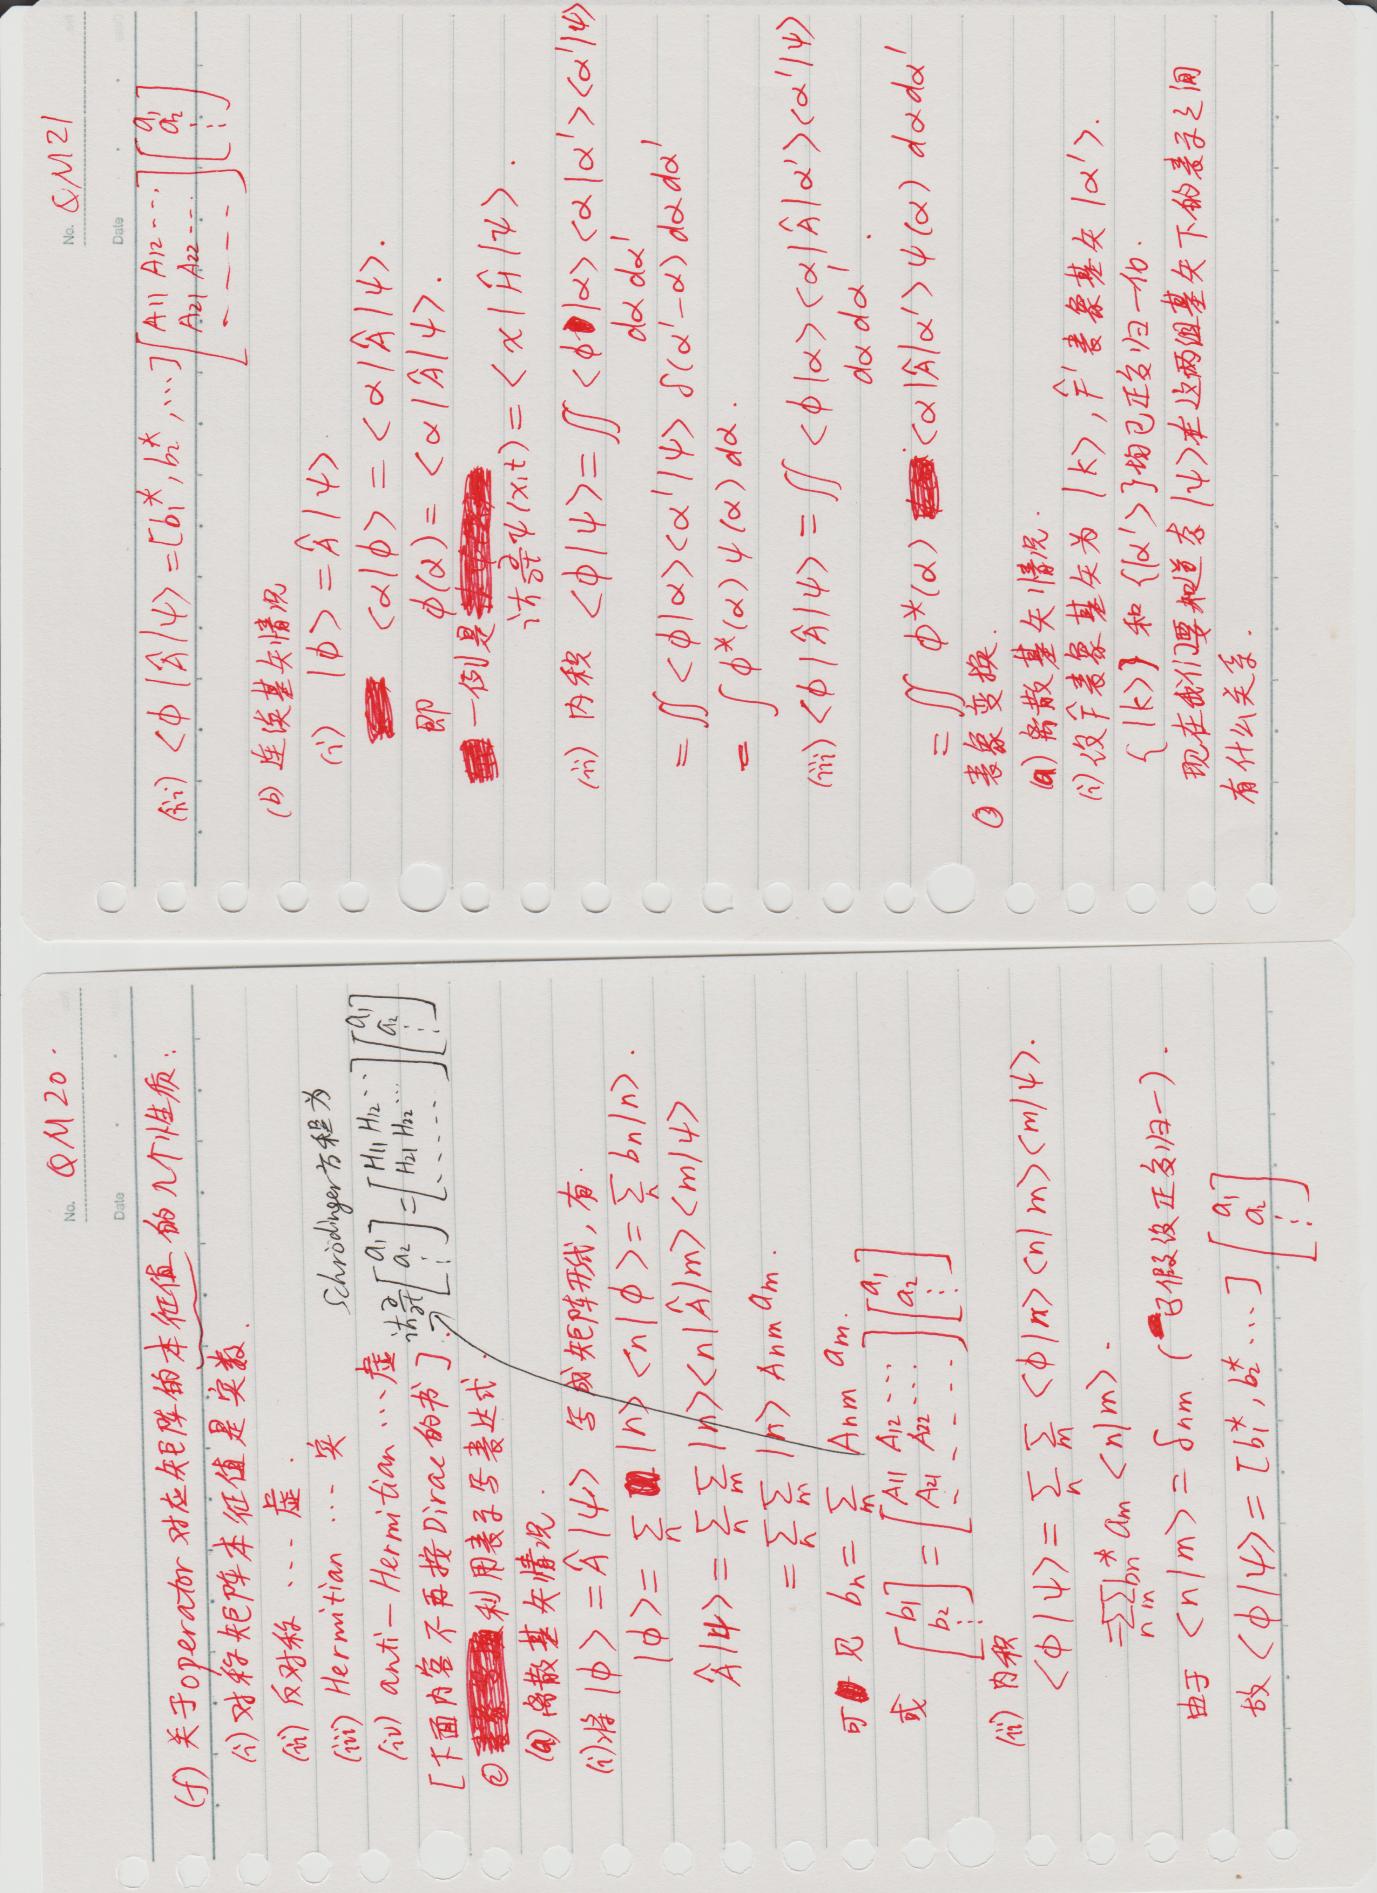 No. QM20.
Date
(f) 关于operator对应矩阵的本征值的几个性质:
(i) 对称矩阵本征值是实数.
(ii) 反对称 … 虚.
(iii) Hermitian … 实
(iv) anti-Hermitian … 虚
Schrödinger方程为
iħ ∂/∂t [a₁ a₂ ⋮] = [H₁₁ H₁₂ … H₂₁ H₂₂ … .....] [a₁ a₂ ⋮]
[下面内容不再按Dirac的书].
② 利用表示写表达式.
(a) 离散基矢情况.
(i) 将 |ϕ> = Â|ψ> 写成矩阵形式, 有.
|ϕ> = Σₙ |n><n|ϕ> = Σₙ bₙ|n>.
Â|ψ> = Σₙ Σₘ |n><n|Â|m><m|ψ>
= Σₙ Σₘ |n> Aₙₘ aₘ.
可见 bₙ = Σₘ Aₙₘ aₘ.
或 [b₁ b₂ ⋮] = [A₁₁ A₁₂ … A₂₁ A₂₂ … - - - - -] [a₁ a₂ ⋮]
(ii) 内积
<ϕ|ψ> = Σₙ Σₘ <ϕ|n><n|m><m|ψ>.
= Σₙ Σₘ bₙ* aₘ <n|m>.
由于 <n|m> = δₙₘ (已假设正交归一).
故 <ϕ|ψ> = [b₁*, b₂* …] [a₁ a₂ ⋮]
No. QM21
Date
(iii) <ϕ|Â|ψ> = [b₁*, b₂*, …] [A₁₁ A₁₂ … A₂₁ A₂₂ … - - - -] [a₁ a₂ ⋮]
(b) 连续基矢情况
(i) |ϕ> = Â|ψ>.
<α|ϕ> = <α|Â|ψ>.
即 ϕ(α) = <α|Â|ψ>.
一例是
iħ ∂/∂t ψ(x,t) = <x|Ĥ|ψ>.
(ii) 内积 <ϕ|ψ> = ∬ <ϕ|α><α|α'><α'|ψ>
dα dα'
= ∬ <ϕ|α><α'|ψ> δ(α'-α) dα dα'
= ∫ ϕ*(α) ψ(α) dα.
(iii) <ϕ|Â|ψ> = ∬ <ϕ|α><α|Â|α'><α'|ψ>
dα dα'.
= ∬ ϕ*(α) <α|Â|α'> ψ(α) dα dα'
③ 表象变换.
(a) 离散基矢情况.
(i) 设F̂表象基矢为 |k>, F̂'表象基矢 |α'>.
{|k>} 和 {|α'>} 均已正交归一化.
现在我们要知道态 |ψ> 在这两组基矢下的表示之间
有什么关系.